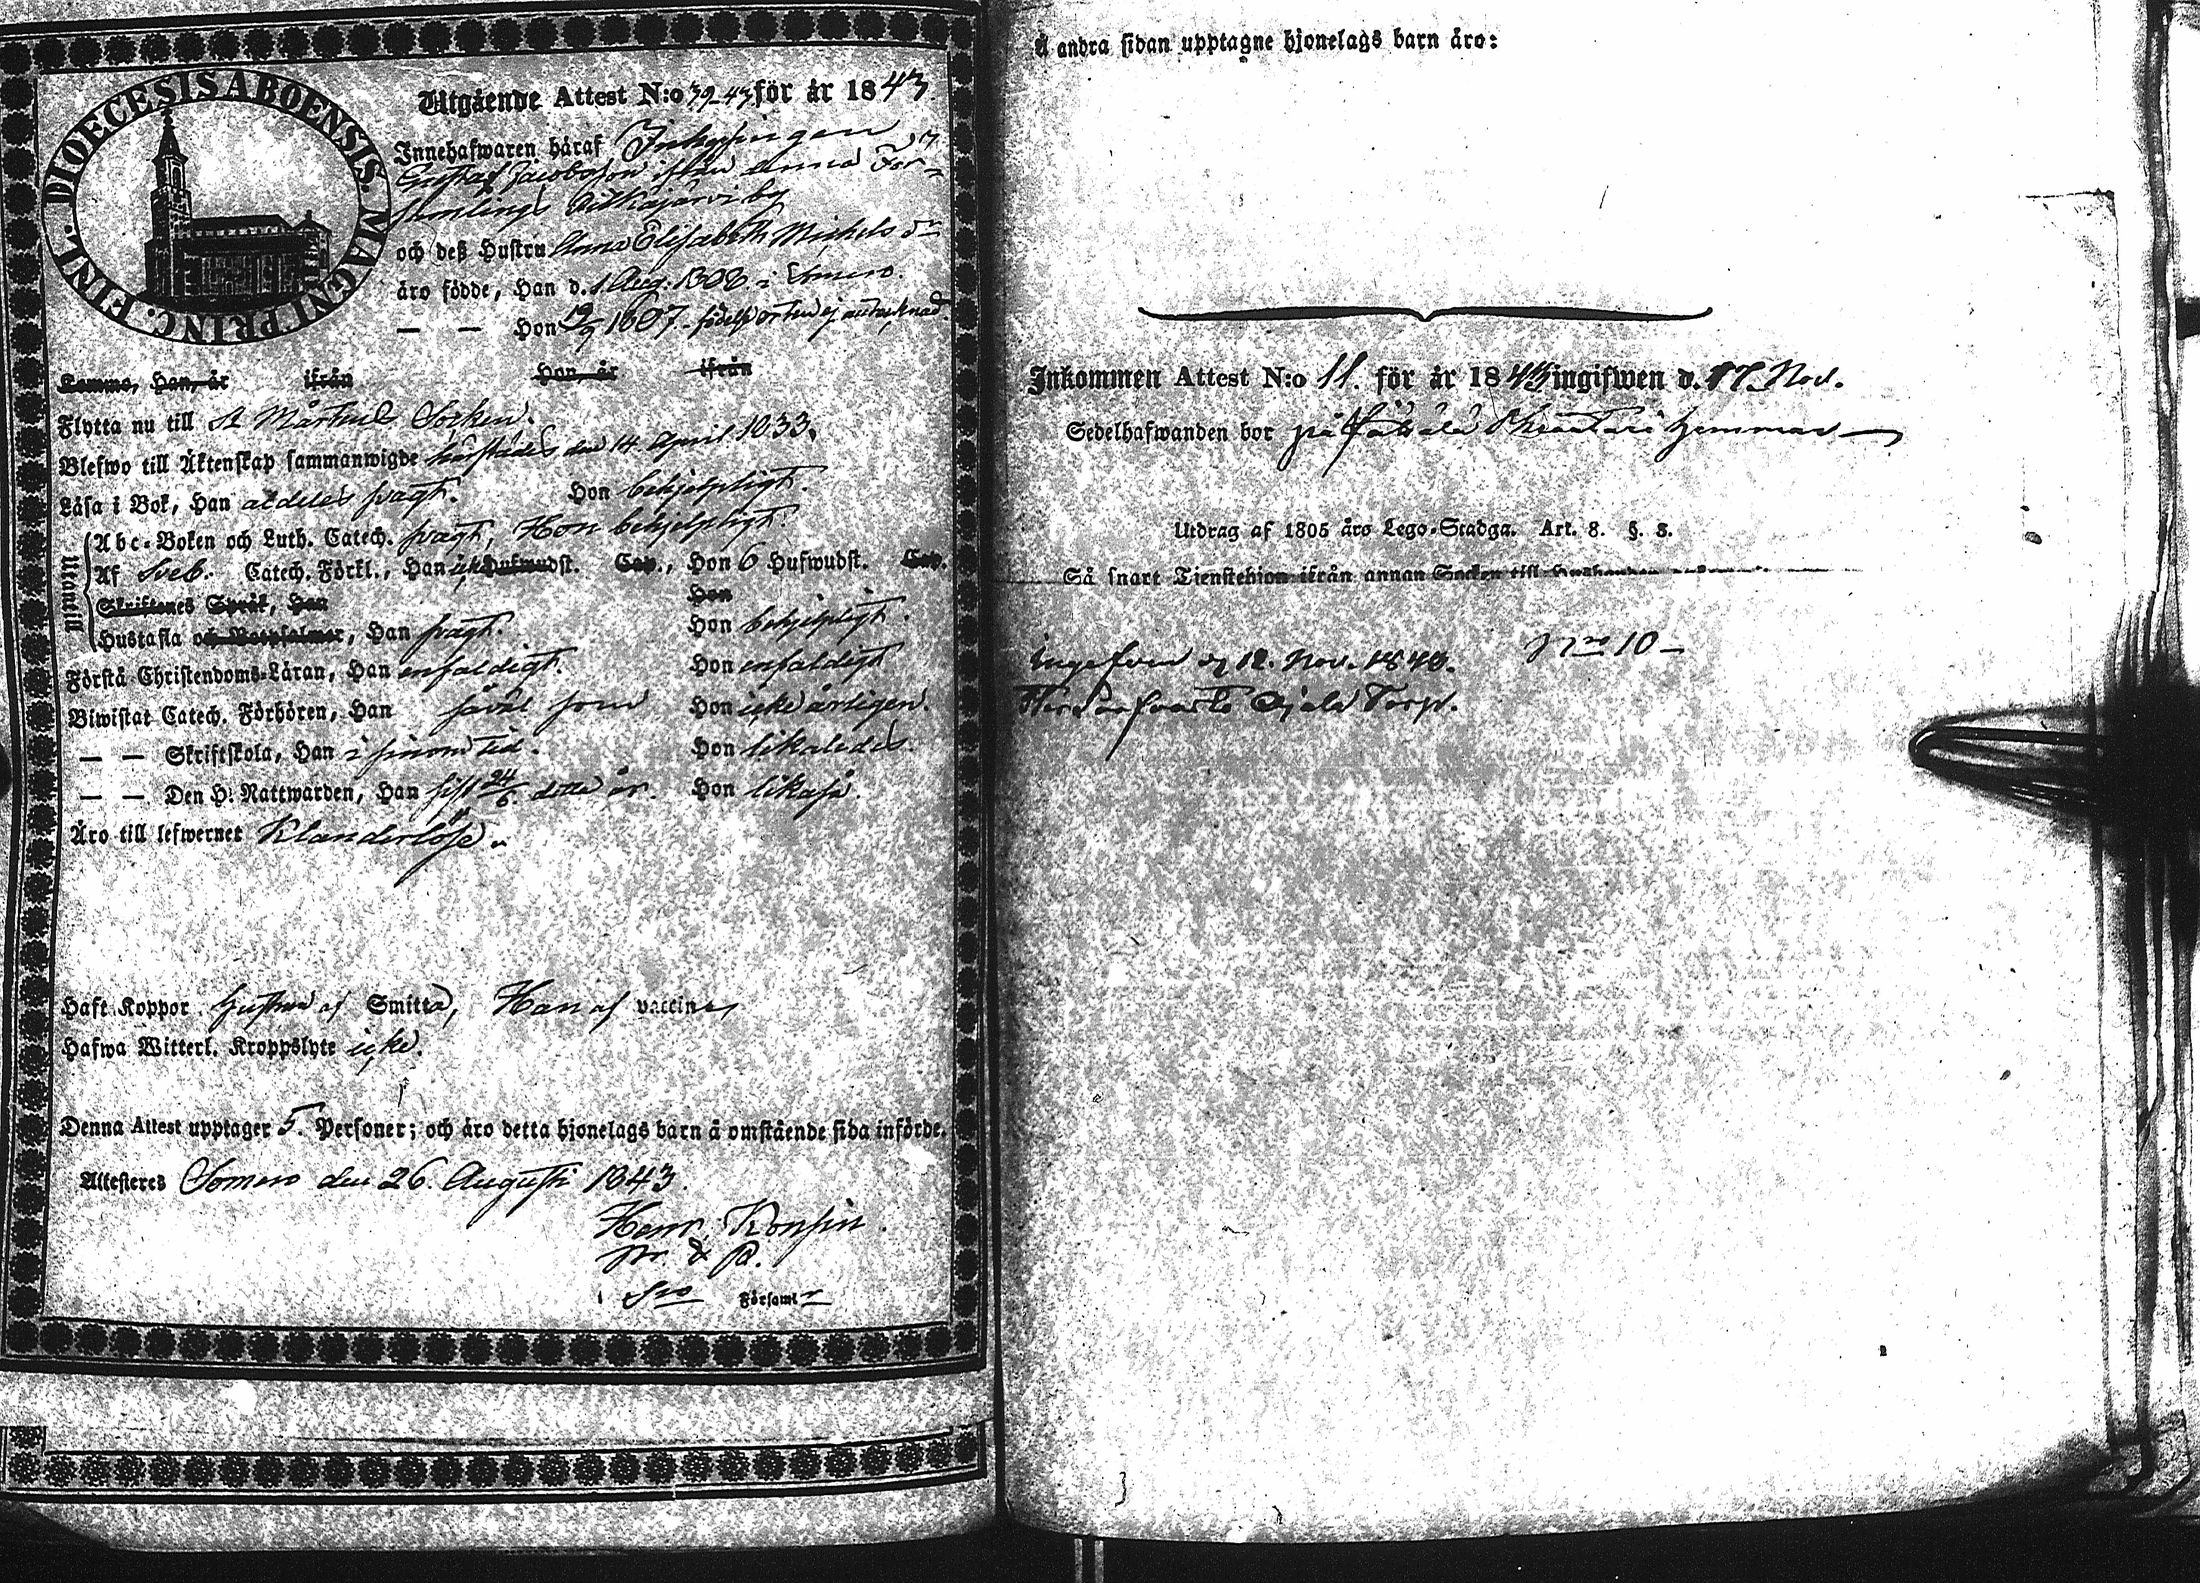 DIOECESIS ABOENSIS. MAGNI PRINC. FINL.
Utgående Attest N:o 39-43 för år 1843.
Innehafwaren häraf Inhysingen
Gustaf Jacobsson ifrån denna För-
samlings Pitkäjärvi by
och deß Hustru Anna Elisabeth Michels dr
äro födde, Han d. 1 Aug. 1808 i Somero.
— — Hon 19/9 1807. födelseorten ej antecknad.
Komma, Han, år ifrån Hon, år ifrån
Flytta nu till St Mårtens Socken.
Blefwo till Äktenskap sammanwigde härstädes den 14 April 1833.
Läsa i Bok, Han aldeles svagt. Hon behjelpligt.
Utanell
Abc-Boken och Luth. Catech. svagt, Hon behjelpligt.
Af Sveb. Catech. Förkl., Han ick Hufwudst. Cap., Hon 6 Hufwudst. Cap.
Skriftenes Språk, Han Hon
Hustafla och Botpsalmer, Han svagt. Hon behjelpligt.
Förstå Christendoms-Läran, Han enfaldigt. Hon enfaldigt
Biwistat Catech. Förhören, Han såväl som Hon icke årligen.
— — Skriftskola, Han i sinom tid. Hon likaledes.
— — Den H. Nattwarden, Han sist 24/6 detta år. Hon likaså.
Äro till lefwernet Klanderlöse.
Haft Koppor Hustrun af Smitta, Han af vaccine
Hafwa Witterl. Kroppslyte icke.
Denna Attest upptager 5. Personer; och äro detta hjonelags barn å omstående sida införde.
Attesteres Somero den 26. Augusti 1843.
Henr. Konsin.
Församl
Å andra sidan upptagne hjonelags barn äro:
Inkommen Attest N:o 11. för år 1843 ingifwen d. 17 Nov.
Sedelhafwanden bor på
Utdrag af 1805 års Lego-Stadga. Art. 8. §. 3.
Så snart Tienstehjon ifrån annan Socken till
Ingifven d 12. Nov. 1843. Nro 10
Torp.